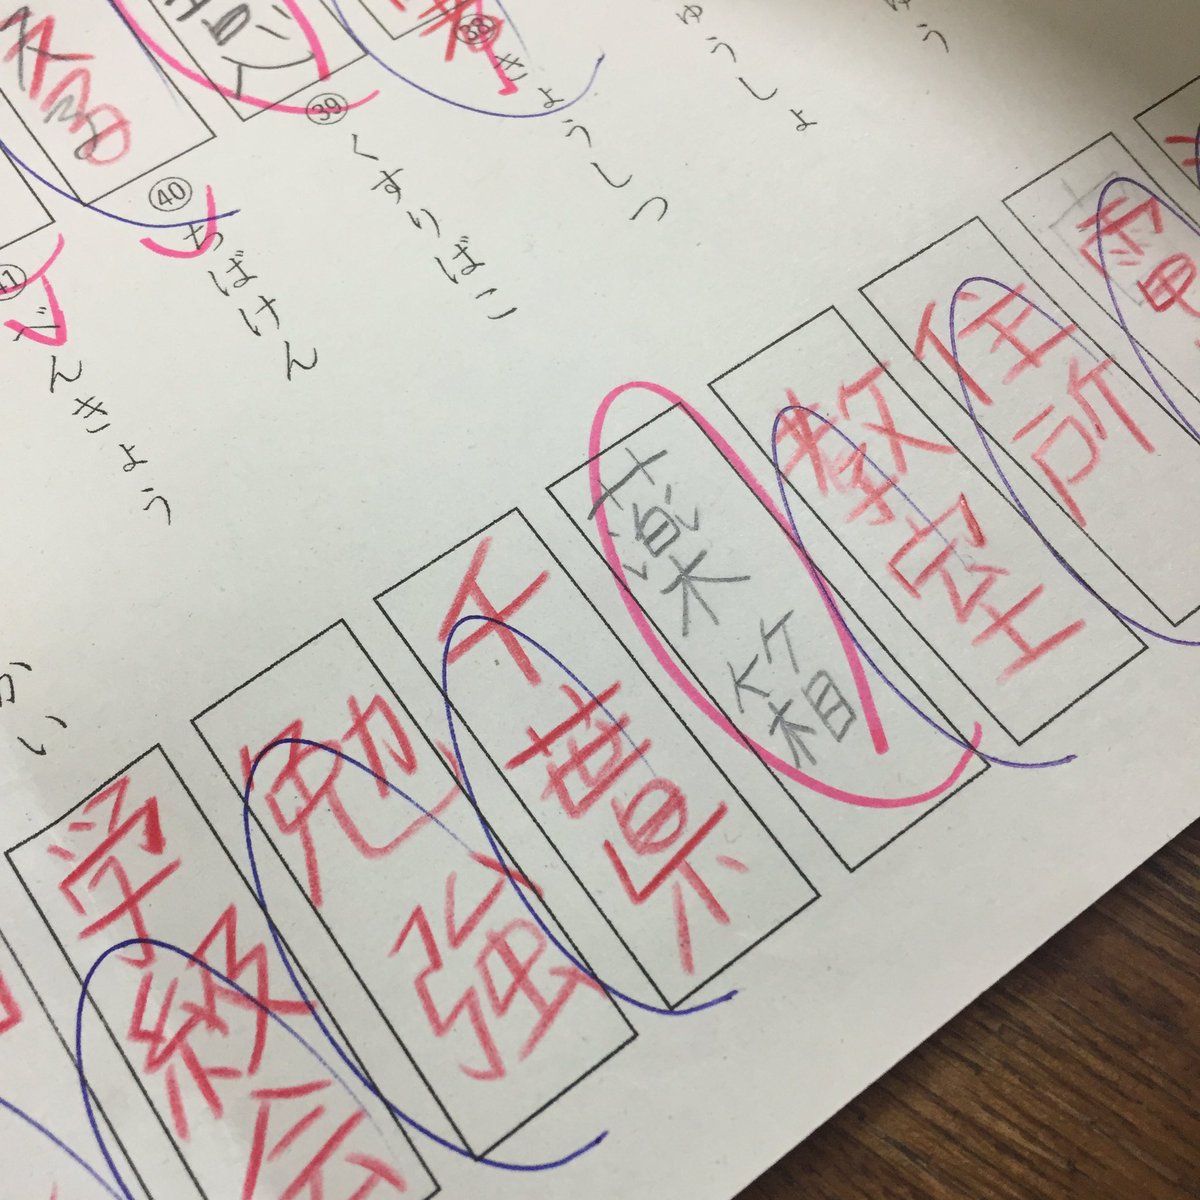 電
ゅうしょ
住所
㊳ きょうしつ
教室
㊴ くすりばこ
薬箱
㊵ ちばけん
千葉県
41 べんきょう
勉強
かい
学級会